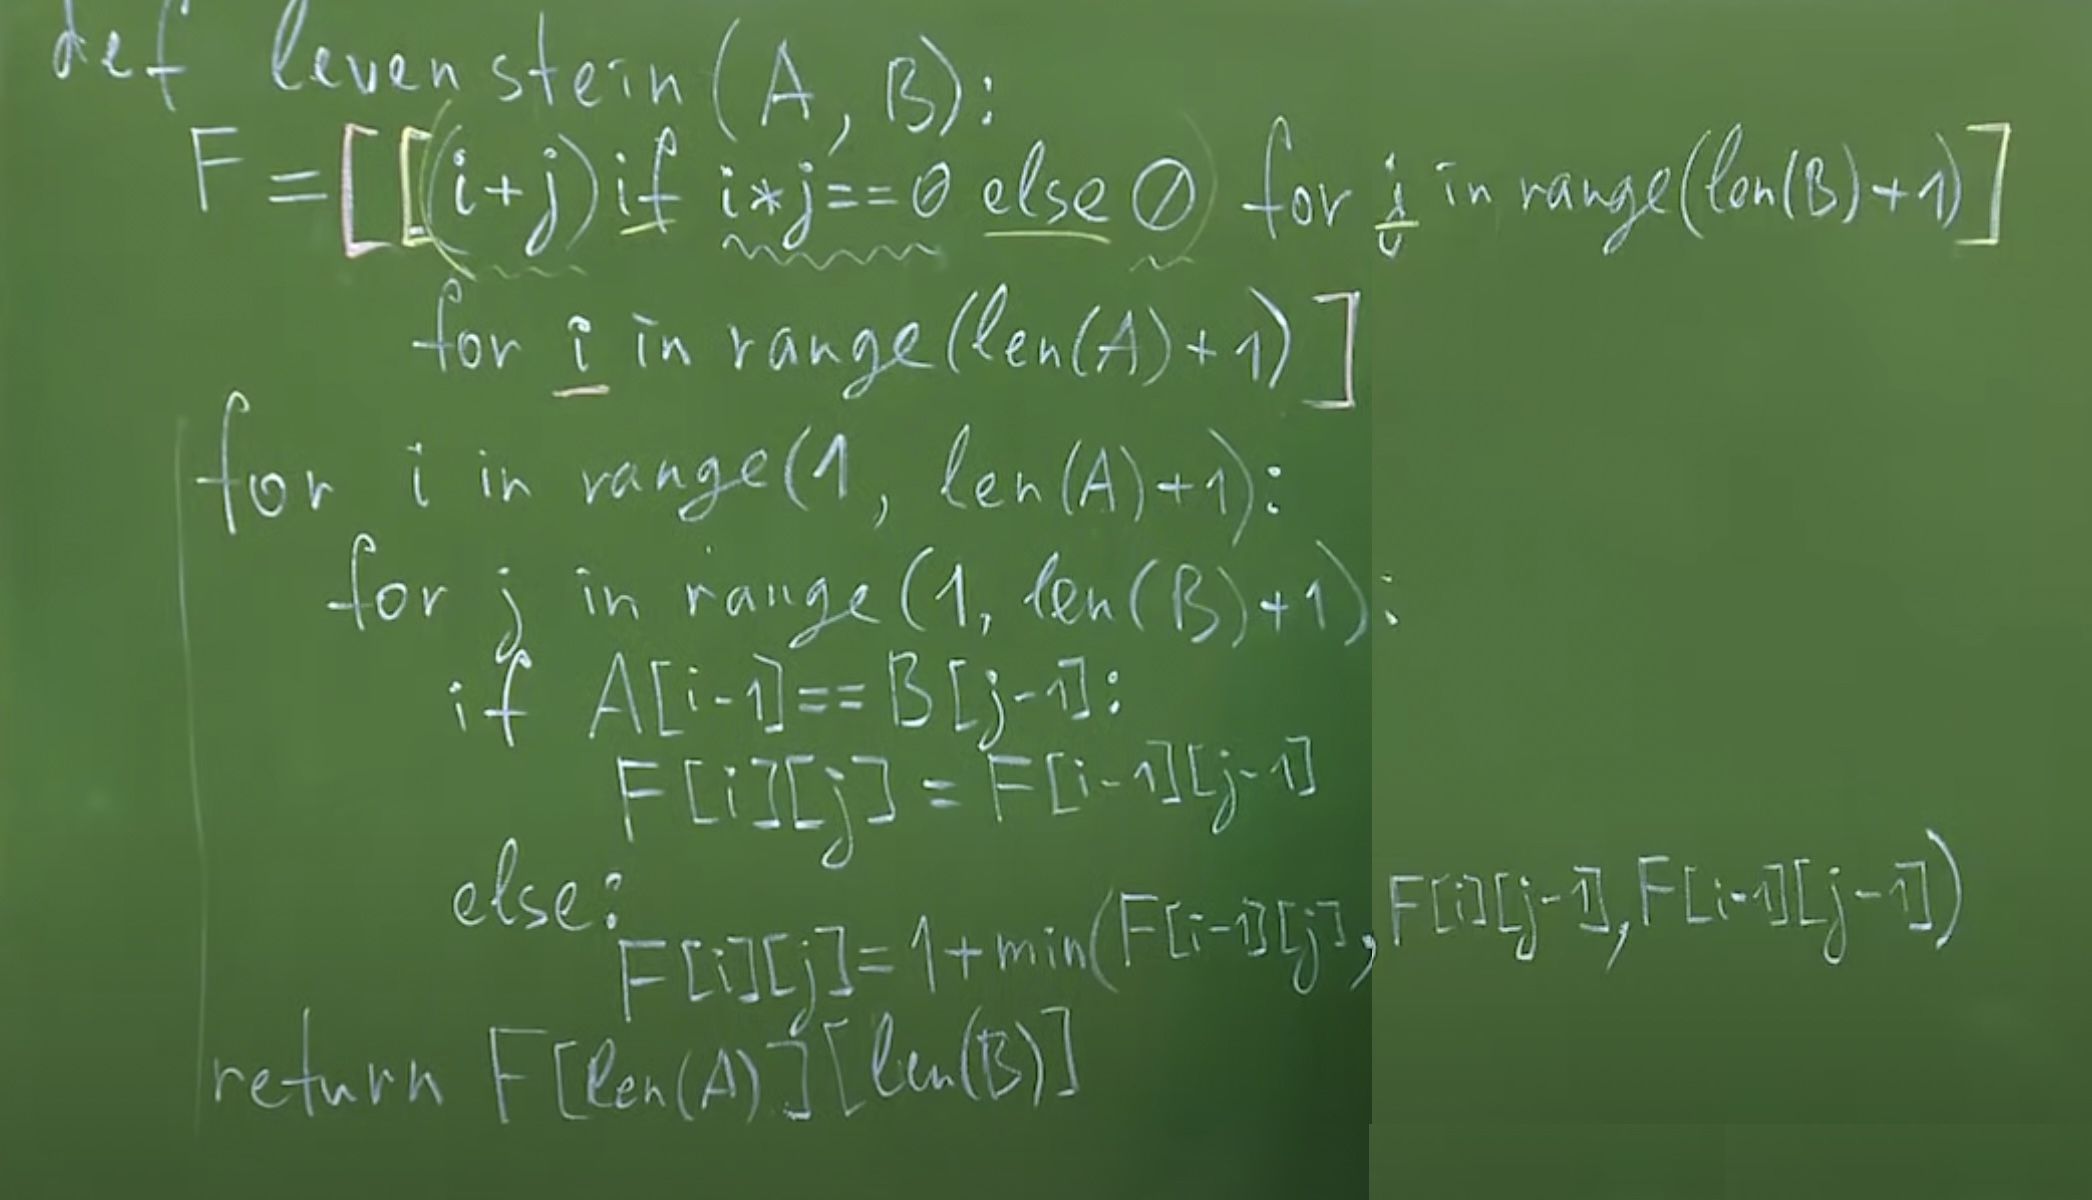 def levenstein(A, B):
F = [[(i+j) if i*j==0 else 0 for j in range(len(B)+1)]
for i in range(len(A)+1)]
for i in range(1, len(A)+1):
for j in range(1, len(B)+1):
if A[i-1]==B[j-1]:
F[i][j] = F[i-1][j-1]
else:
F[i][j]=1+min(F[i-1][j], F[i][j-1], F[i-1][j-1])
return F[len(A)][len(B)]